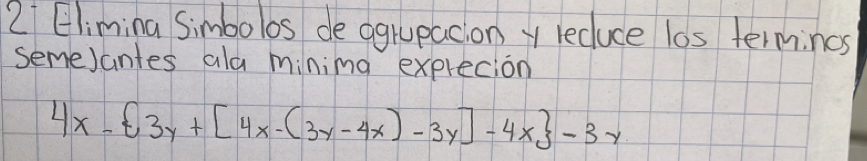 2- Elimina Simbolos de agrupacion y reduce los terminos
semejantes ala minima expreción
4x - {3y + [4x - (3y - 4x) - 3y] - 4x} - 3y